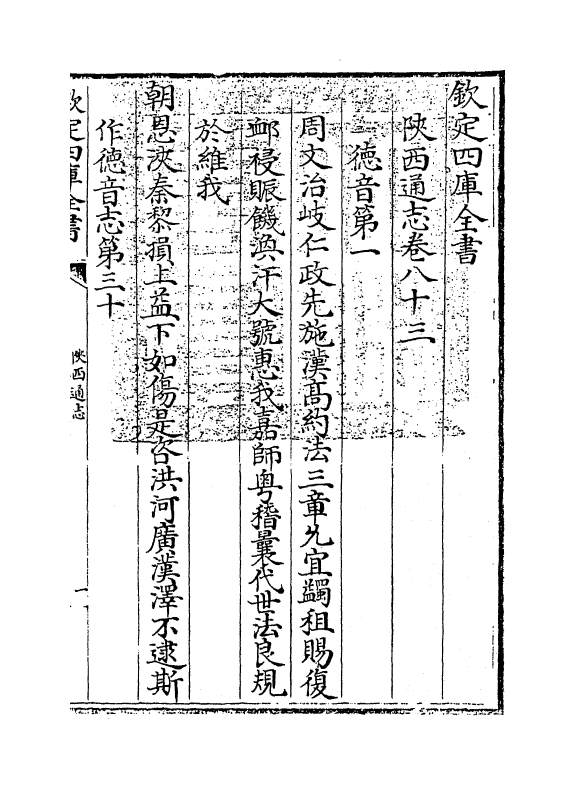 欽定四庫全書
陝西通志卷八十三
德音第一
周文治岐仁政先施漢高約法三章允宜蠲租賜復
䘏祲賑饑渙汗大號惠我嘉師粤稽曩代世法良規
於維我
朝恩浹秦黎損上益下如傷是咨洪河廣漢澤不逮斯
作德音志第三十
欽定四庫全書
陝西通志
一